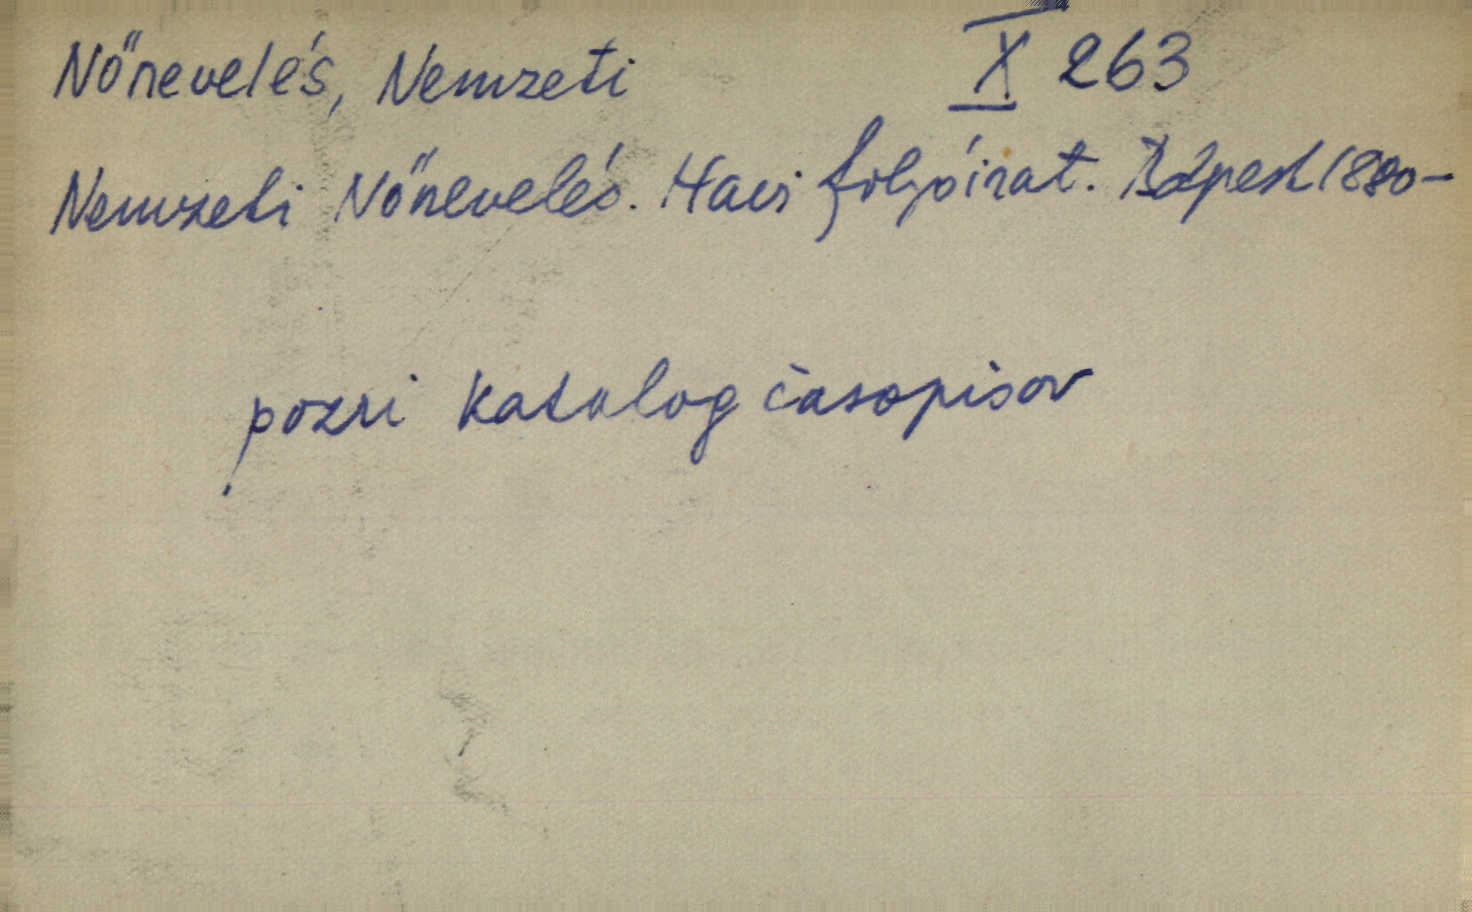 Nőnevelés, Nemzeti X 263
Nemzeti Nőnevelés. Havi folyóirat. Bdpest 1880-
pozri katalog časopisov